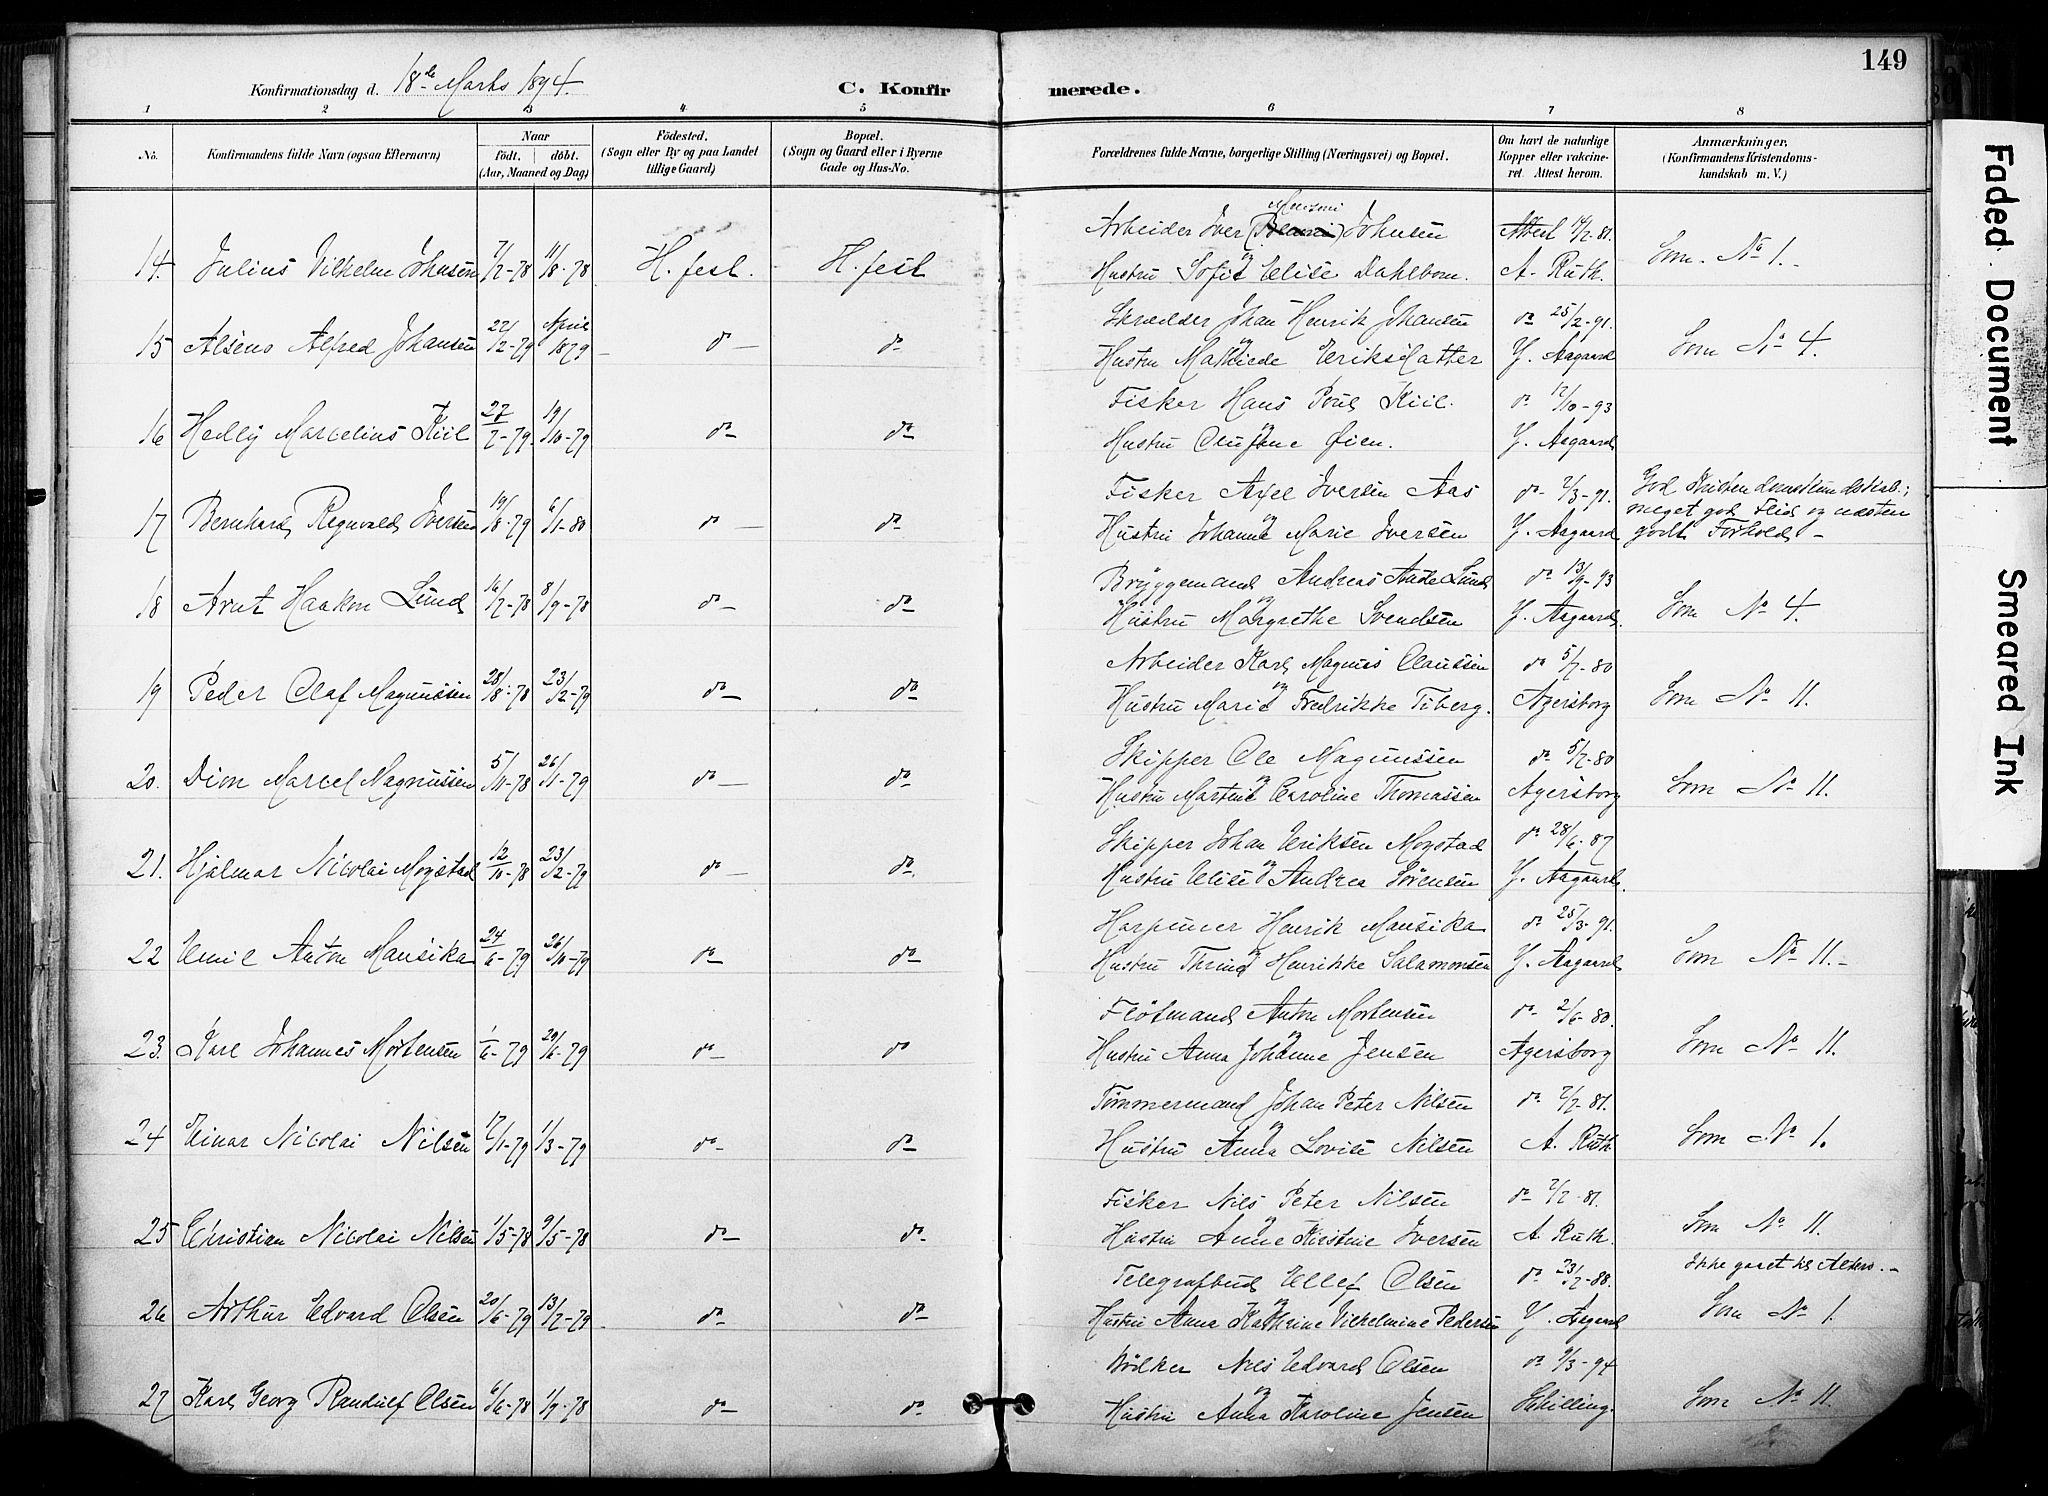 149
Konfirmationsdag d. 18de Marts 1894.
C. Konfirmerede.
1 2 3 4 5 6 7 8
No. Konfirmandens fulde Navn (ogsaa Efternavn) Naar født. døbt. (Aar, Maaned og Dag) Fødested. (Sogn eller By og paa Landet tillige Gaard) Bopæl. (Sogn og Gaard eller i Byerne Gade og Hus-No. Forældrenes fulde Navne, borgerlige Stilling (Næringsvei) og Bopæl. Om havt de naturlige Kopper eller vakcineret. Attest herom. Anmærkninger. (Konfirmandens Kristendomskundskab m. V.)
Arbeider Iver Johnsen Attest 14/2-81.
14. Julius Vilhelm Johnsen 7/2-78 11/8-78 H.fest. H.fest og Hustru Sofie Elise Dahlbom. A. Ruth. Som No 1.-
Skrædder Johan Henrik Johansen do 25/2-91.
15 Alsens Alfred Johansen 22/2-79 April 1879 do do og Hustru Mathilde Eriksdatter Y. Aagaard Som No 4.
Fisker Hans Poul Kiil. do 12/10-93
16 Hedly Marcelius Kiil 27/7-79. 19/10-79 do do Hustru Olufine Øien. Y. Aagaard
Fisker Axel Iversen Aas do 2/3-91. God Kristendomskundskab;
meget god Flid og næsten
17 Bernhard Regnvald Iversen 19/8-79 6/1-80 do do og Hustru Johanne Marie Iversen Y. Aagaard godt Forhold -
Bryggemand Andreas Lund do 13/9-93
18 Arnt Haakon Lund 16/7-78 8/9-78 do do og Hustru Margrethe Svendsen Y. Aagaard. Som No 4.
Arbeider Karl Magnus Claussen do 5/7-80
19 Peder Olaf Magnussen 28/8-78 23/2-79 do do og Hustru Marie Fredrikke Tiberg. Agersborg Som No 11.
Skipper Ole Magnussen do 5/7-80
20. Dion Marcel Magnussen 5/11-78 26/1-79 do do og Hustru Martine Caroline Thomassen Agersborg Som No 11.
Skipper Johan Eriksen Mogstad do 28/6-87
21. Hjalmar Nicolai Mogstad 12/10-78 23/2-79 do do. og Hustru Elise Andrea Sørensen Y. Aagaard.
Harpuner Henrik Mansika do 25/3-91.
22 Emil Anton Mansika 24/6-79 26/10-79 do do og Hustru Thrine Henrikke Salamonsen Y. Aagaard Som No 11.-
Fløtmand Anton Mortensen do 2/6-80.
23. Karl Johannes Mortensen 1/6-79 29/6-79 do do og Hustru Anna Johanne Jensen Agersborg Som No 11.
Tømmermand Johan Peter Nilsen do 2/2-81.
24 Einar Nicolai Nilsen 17/1-79 1/3-79 do do og Hustru Anna Lovise Nilsen A. Ruth Som No 1.
Fisker Nils Peter Nilsen do 2/2-81.
25 Christian Nicolai Nilsen 1/5-78 9/5-78 do do og Hustru Anne Kirstine Iversen A. Ruth. Som No 11.
Telegrafbud Ellef Olsen do 23/2-88. Ikke gaaet til Alters.-
26 Arthur Edvard Olsen 20/6-79 13/7-79 do do og Hustru Anna Kathrine Vilhelmine Pedersen Y. Aagaard Som No 1.
Bødker Nils Edvard Olsen do 9/3-94
27 Karl Georg Randulf Olsen 6/6-78 1/9-78 do do og Hustru Anna Karoline Jensen Schilling. Som No 11.
Faded Document
Smeared Ink